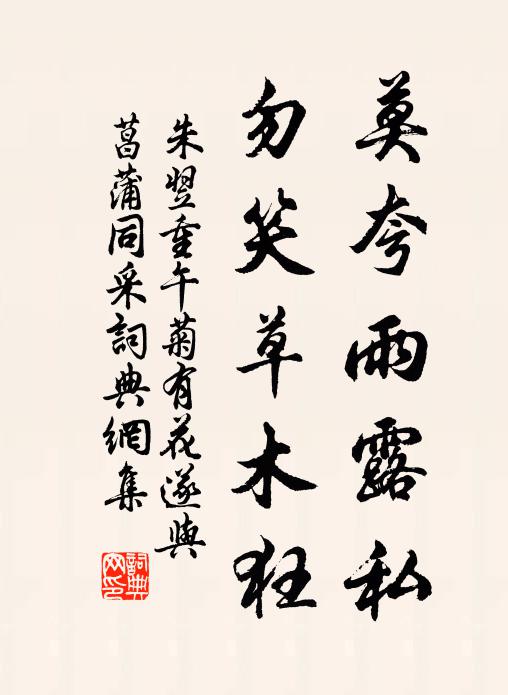 莫夸雨露私
勿笑草木狂
朱翌重午菊有花遂與
菖蒲同采詞典網集
詞典網印